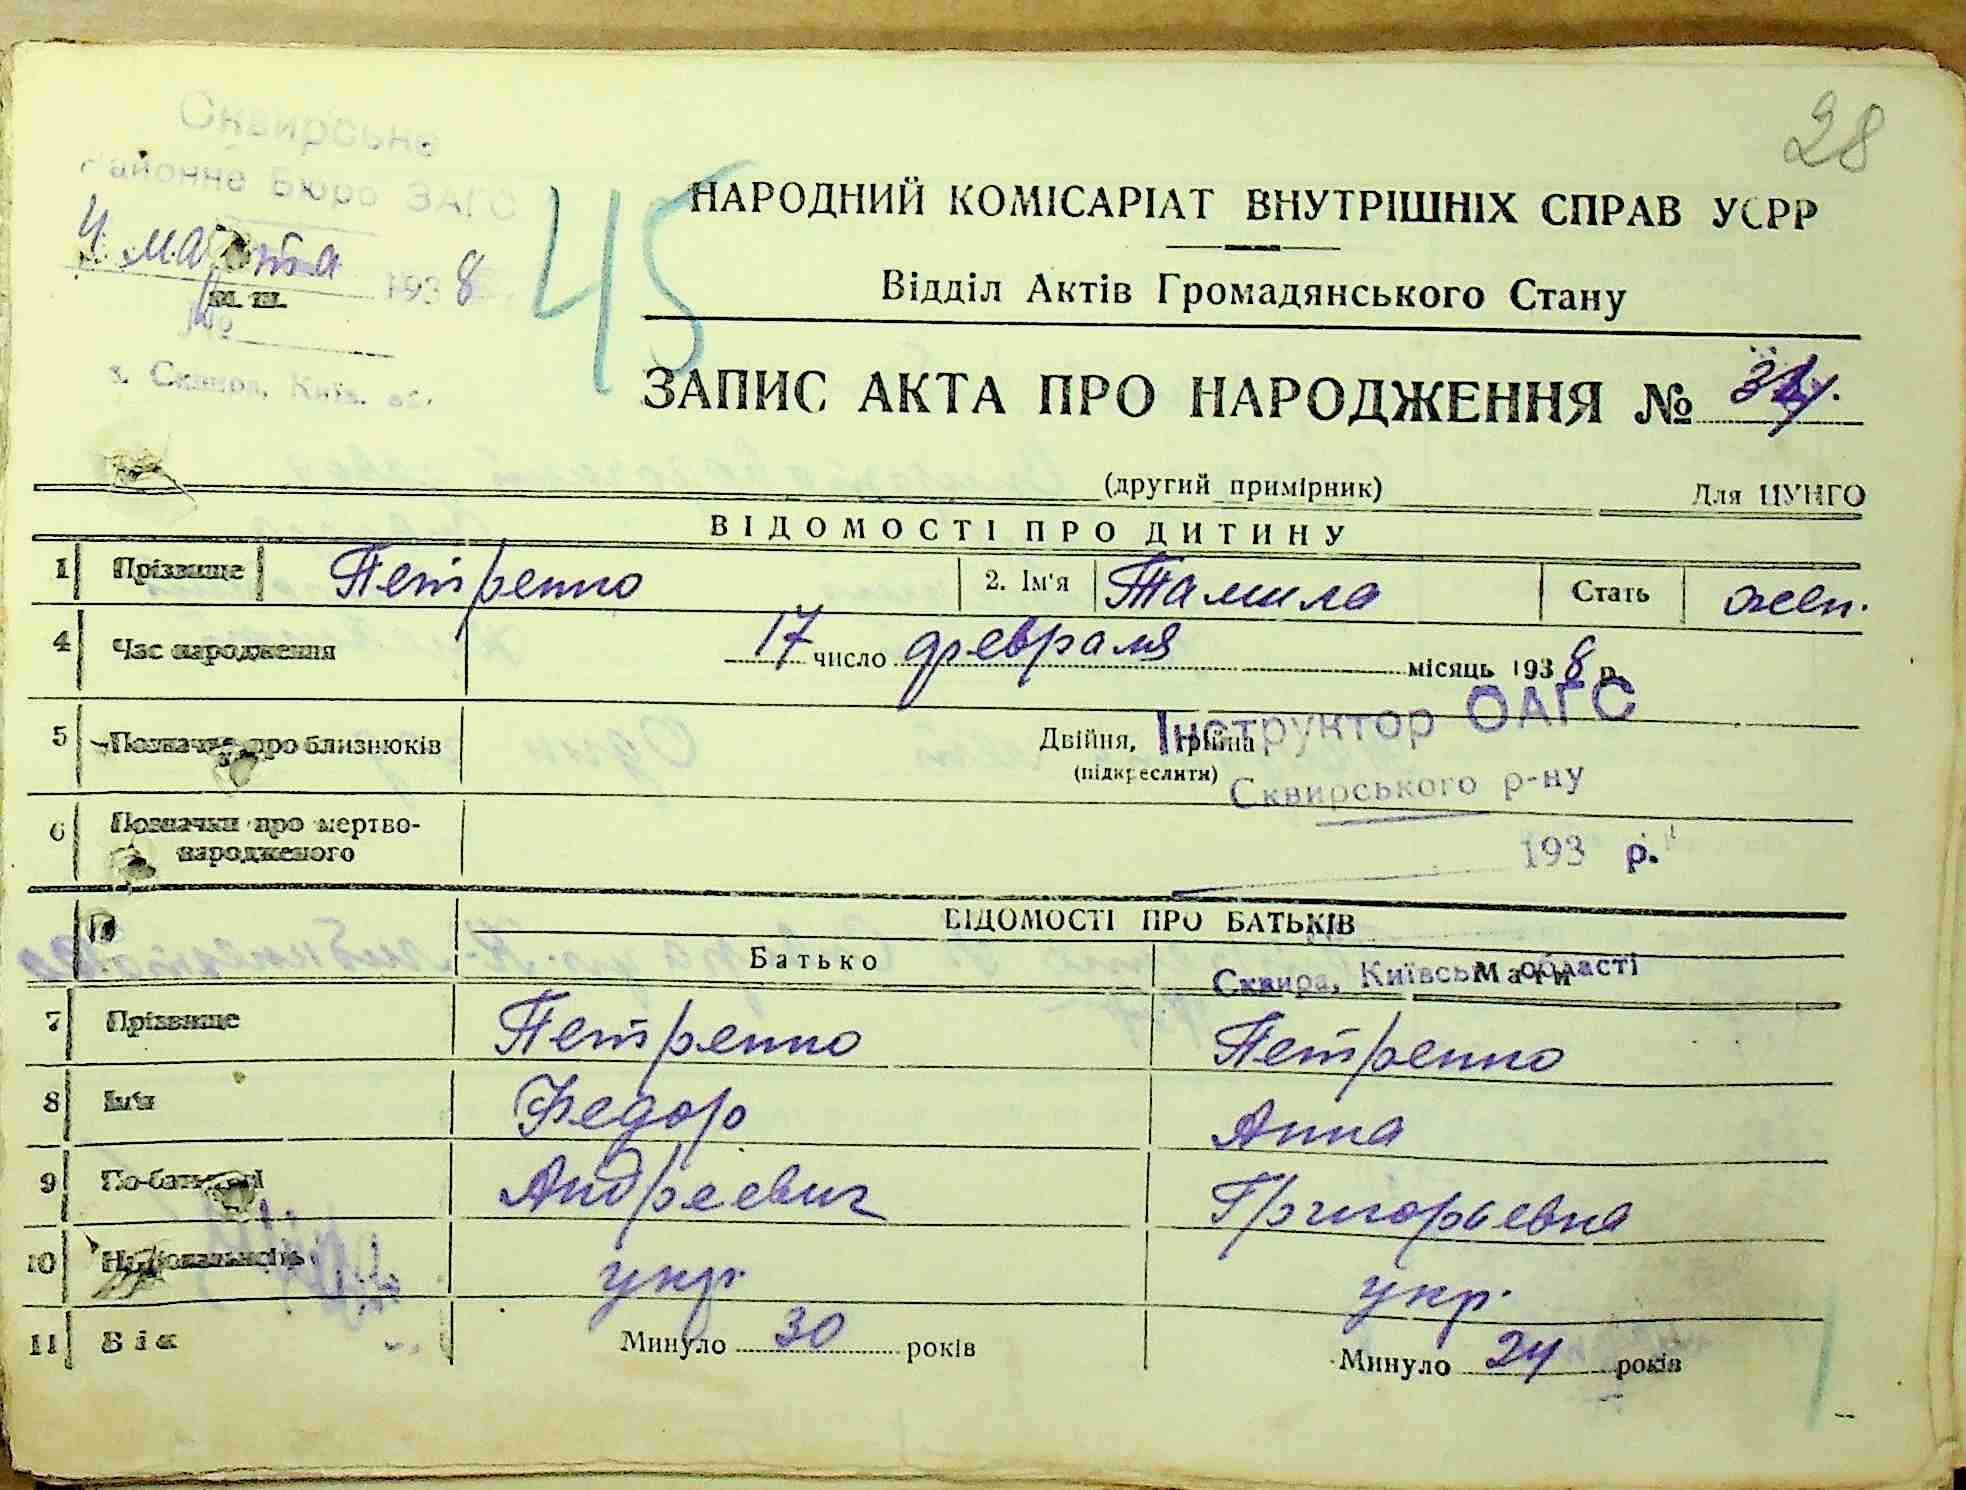 28
Сквирське
Районне Бюро ЗАГС
4 марта 1938
№
м. Сквира, Київ. об.
45
НАРОДНИЙ КОМІСАРІАТ ВНУТРІШНІХ СПРАВ УСРР
Відділ Актів Громадянського Стану
ЗАПИС АКТА ПРО НАРОДЖЕННЯ №
(другий примірник) Для ЦУНГО
ВІДОМОСТІ ПРО ДИТИНУ
1 Прізвище Петренко 2. Ім'я Тамила Стать жен.
4 Час народження 17 число февраля місяць 1938 р.
5 Позначка про близнюків Двійня, трійня
(підкреслити)
Інструктор ОАГС
Сквирського р-ну
6 Позначки про мертво-
народженого
193 р.
ВІДОМОСТІ ПРО БАТЬКІВ
Батько Мати
Сквира, Київської області
7 Прізвище Петренко Петренко
8 Ім'я Федор Анна
9 По-батькові Андреевич Григорьевна
10 Національність укр. укр.
11 Вік Минуло 30 років Минуло 24 років